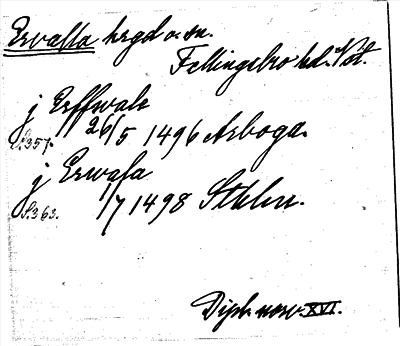 Ervalla hrgd o. sn.
Fellingsbro hd. Vstl.
j Erffwale
S.357. 26/5 1496 Arboga.
j Erwala
S.363. 1/7 1498 Sthlm.
Dipl. norv. XVI.